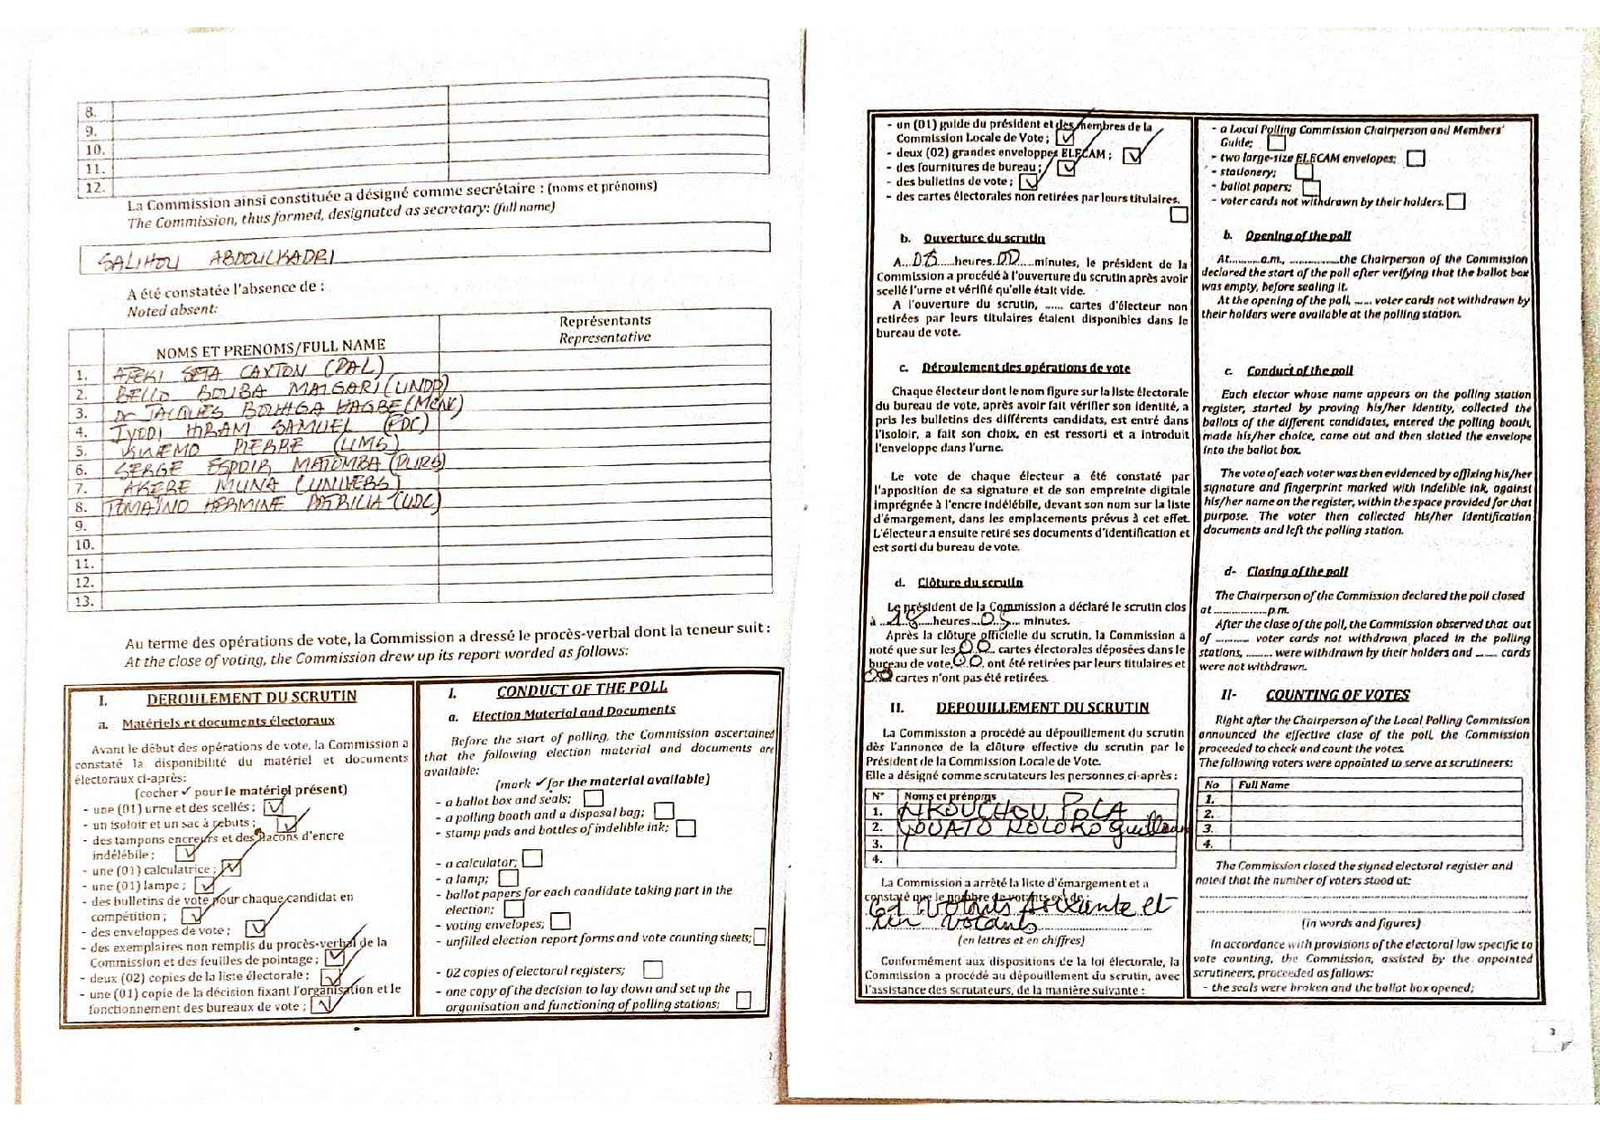 8.
9.
10.
11.
12.
La Commission ainsi constituée a désigné comme secrétaire : (noms et prénoms)
The Commission, thus formed, designated as secretary: (full name)
SALIHOU ABDOULKADRI
A été constatée l'absence de :
Noted absent:
NOMS ET PRENOMS/FULL NAME
Représentants
Representative
1. AFEKI SETA CAXTON (PAL)
2. BELLO BOUBA MAIGARI (UNDP)
3. Dr JACQUES BOUHGA HAGBE (MCNC)
4. IYODI HIRAM SAMUEL (FDC)
5. KWEMO PIERRE (UMS)
6. SERGE ESPOIR MATOMBA (PURS)
7. AKERE MUNA (UNIVERS)
8. TOMAINO HERMINE PATRICIA (UDC)
9.
10.
11.
12.
13.
Au terme des opérations de vote, la Commission a dressé le procès-verbal dont la teneur suit :
At the close of voting, the Commission drew up its report worded as follows:
I. DEROULEMENT DU SCRUTIN
a. Matériels et documents électoraux
Avant le début des opérations de vote, la Commission a
constaté la disponibilité du matériel et documents
électoraux ci-après:
(cocher ✓ pour le matériel présent)
- une (01) urne et des scellés ;
- un isoloir et un sac à rebuts ;
- des tampons encreurs et des flacons d'encre
indélébile ;
- une (01) calculatrice ;
- une (01) lampe ;
- des bulletins de vote pour chaque candidat en
compétition ;
- des enveloppes de vote ;
- des exemplaires non remplis du procès-verbal de la
Commission et des feuilles de pointage ;
- deux (02) copies de la liste électorale ;
- une (01) copie de la décision fixant l'organisation et le
fonctionnement des bureaux de vote ;
I. CONDUCT OF THE POLL
a. Election Material and Documents
Before the start of polling, the Commission ascertained
that the following election material and documents are
available:
(mark ✓ for the material available)
- a ballot box and seals;
- a polling booth and a disposal bag;
- stamp pads and bottles of indelible ink;
- a calculator;
- a lamp;
- ballot papers for each candidate taking part in the
election;
- voting envelopes;
- unfilled election report forms and vote counting sheets;
- 02 copies of electoral registers;
- one copy of the decision to lay down and set up the
organisation and functioning of polling stations;
- un (01) guide du président et des membres de la
Commission Locale de Vote ;
- deux (02) grandes enveloppes ELECAM ;
- des fournitures de bureau ;
- des bulletins de vote ;
- des cartes électorales non retirées par leurs titulaires.
b. Ouverture du scrutin
A 08 heures 00 minutes, le président de la
Commission a procédé à l'ouverture du scrutin après avoir
scellé l'urne et vérifié qu'elle était vide.
A l'ouverture du scrutin, ...... cartes d'électeur non
retirées par leurs titulaires étaient disponibles dans le
bureau de vote.
c. Déroulement des opérations de vote
Chaque électeur dont le nom figure sur la liste électorale
du bureau de vote, après avoir fait vérifier son identité, a
pris les bulletins des différents candidats, est entré dans
l'isoloir, a fait son choix, en est ressorti et a introduit
l'enveloppe dans l'urne.
Le vote de chaque électeur a été constaté par
l'apposition de sa signature et de son empreinte digitale
imprégnée à l'encre indélébile, devant son nom sur la liste
d'émargement, dans les emplacements prévus à cet effet.
L'électeur a ensuite retiré ses documents d'identification et
est sorti du bureau de vote.
d. Clôture du scrutin
Le président de la Commission a déclaré le scrutin clos
à 18 heures 05 minutes.
Après la clôture officielle du scrutin, la Commission a
noté que sur les 00 cartes électorales déposées dans le
bureau de vote, 00 ont été retirées par leurs titulaires et
00 cartes n'ont pas été retirées.
II. DEPOUILLEMENT DU SCRUTIN
La Commission a procédé au dépouillement du scrutin
dès l'annonce de la clôture effective du scrutin par le
Président de la Commission Locale de Vote.
Elle a désigné comme scrutateurs les personnes ci-après :
N° Noms et prénoms
1. NKOUCHOU POLA
2.
3.
4.
La Commission a arrêté la liste d'émargement et a
constaté que le nombre de votants est de
61 votants soixante et
un votants
(en lettres et en chiffres)
Conformément aux dispositions de la loi électorale, la
Commission a procédé au dépouillement du scrutin, avec
l'assistance des scrutateurs, de la manière suivante :
- a Local Polling Commission Chairperson and Members'
Guide;
- two large-size ELECAM envelopes;
- stationery;
- ballot papers;
- voter cards not withdrawn by their holders.
b. Opening of the poll
At..........a.m., ..............the Chairperson of the Commission
declared the start of the poll after verifying that the ballot box
was empty, before sealing it.
At the opening of the poll, ...... voter cards not withdrawn by
their holders were available at the polling station.
c. Conduct of the poll
Each elector whose name appears on the polling station
register, started by proving his/her identity, collected the
ballots of the different candidates, entered the polling booth,
made his/her choice, came out and then slotted the envelope
into the ballot box.
The vote of each voter was then evidenced by affixing his/her
signature and fingerprint marked with indelible ink, against
his/her name on the register, within the space provided for that
purpose. The voter then collected his/her identification
documents and left the polling station.
d- Closing of the poll
The Chairperson of the Commission declared the poll closed
at ................p.m.
After the close of the poll, the Commission observed that out
of .......... voter cards not withdrawn placed in the polling
stations, ........ were withdrawn by their holders and ...... cards
were not withdrawn.
II- COUNTING OF VOTES
Right after the Chairperson of the Local Polling Commission
announced the effective close of the poll, the Commission
proceeded to check and count the votes.
The following voters were appointed to serve as scrutineers:
No Full Name
1.
2.
3.
4.
The Commission closed the signed electoral register and
noted that the number of voters stood at:
(in words and figures)
In accordance with provisions of the electoral law specific to
vote counting, the Commission, assisted by the appointed
scrutineers, proceeded as follows:
- the seals were broken and the ballot box opened;
3